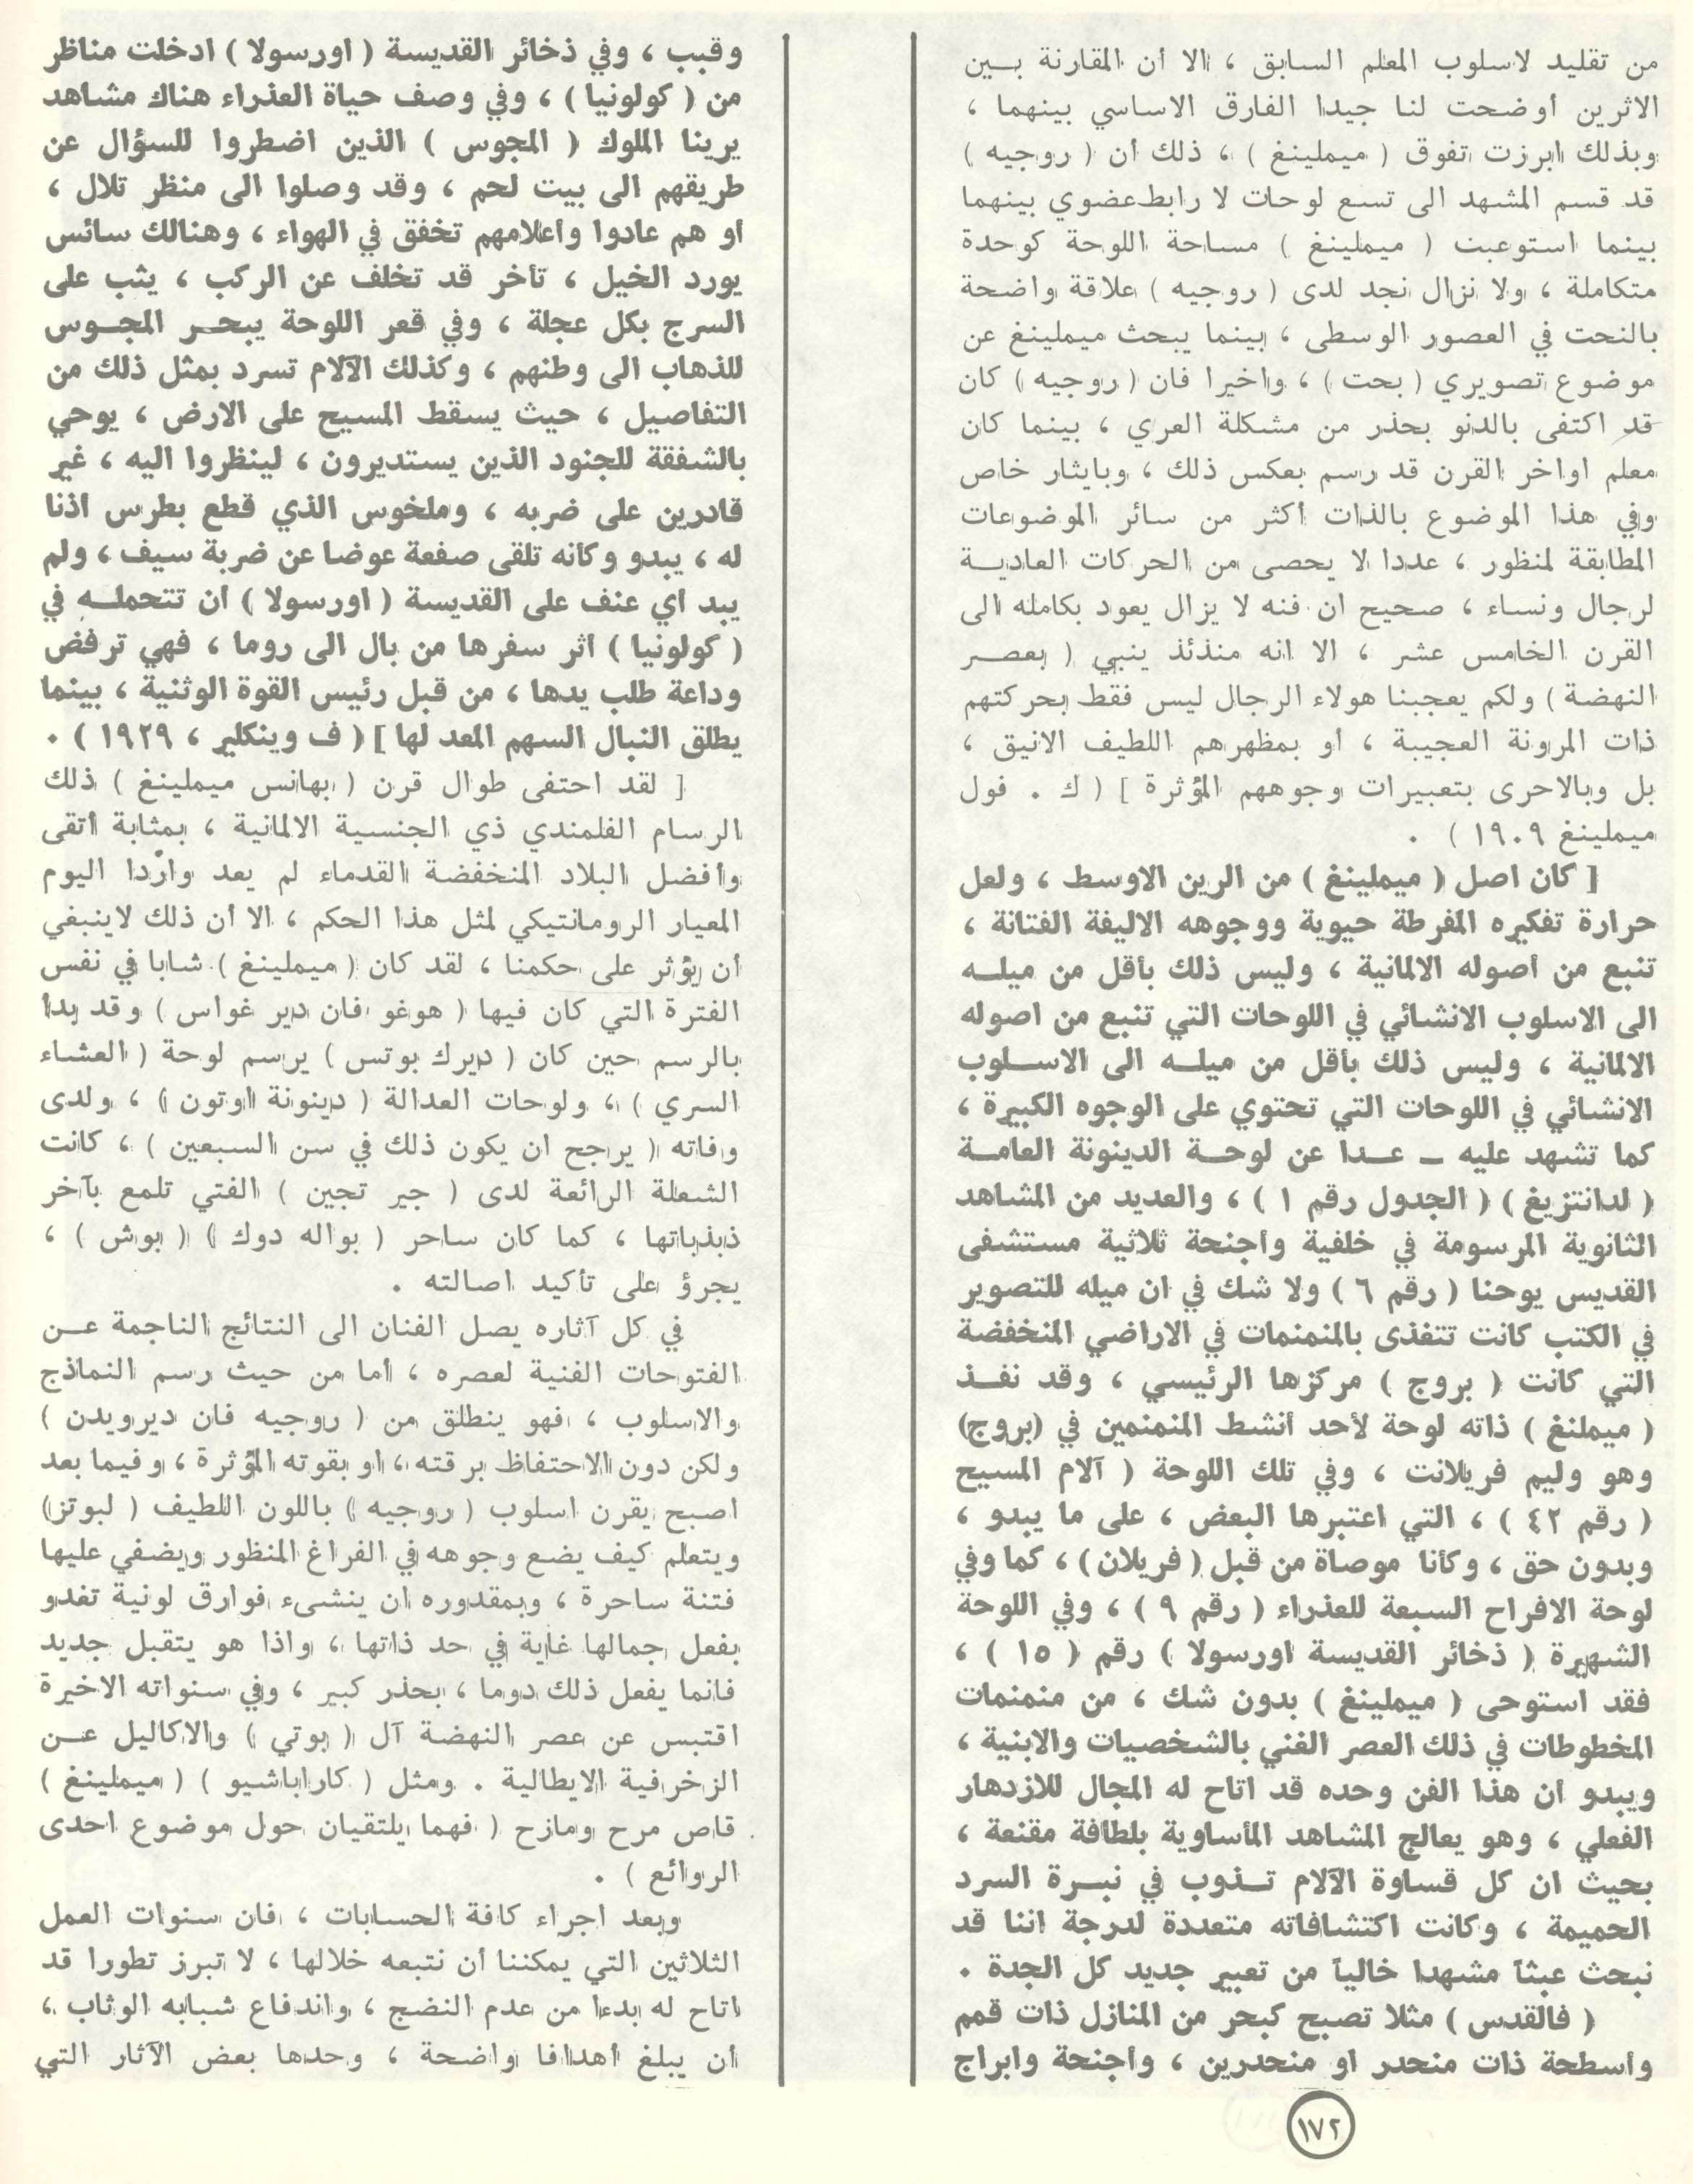 من تقليد لاسلوب المعلم السابق ، الا ان المقارنة بـين
الاثرين أوضحت لنا جيدا الفارق الاساسي بينهما ،
وبذلك ابرزت تفوق ( ميملينغ ) ، ذلك أن ( روجيه )
قد قسم المشهد الى تسع لوحات لا رابط عضوي بينهما
بينما استوعبت ( ميملينغ ) مساحة اللوحة كوحدة
متكاملة ، ولا نزال نجد لدى ( روجيه ) علاقة واضحة
بالنحت في العصور الوسطى ، بينما يبحث ميملينغ عن
موضوع تصويري ( بحت ) ، واخيرا فان ( روجيه ) كان
قد اكتفى بالدنو بحذر من مشكلة العري ، بينما كان
معلم اواخر القرن قد رسم بعكس ذلك ، وبايثار خاص
وفي هذا الموضوع بالذات أكثر من سائر الموضوعات
المطابقة لمنظور ، عددا لا يحصى من الحركات العاديـة
لرجال ونساء ، صحيح ان فنه لا يزال يعود بكامله الى
القرن الخامس عشر ، الا انه منذئذ ينبي ( بعصـر
النهضة ) ولكم يعجبنا هولاء الرجال ليس فقط بحركتهم
ذات المرونة العجيبة ، أو بمظهرهم اللطيف الانيق ،
بل وبالاحرى بتعبيرات وجوههم المؤثرة ] ( ك . فول
ميملينغ ١٩٠٩ ) .
[ كان اصل ( ميملينغ ) من الرين الاوسط ، ولعل
حرارة تفكيره المفرطة حيوية ووجوهه الاليفة الفتانة ،
تنبع من أصوله الالمانية ، وليس ذلك بأقل من ميلـه
الى الاسلوب الانشائي في اللوحات التي تنبع من اصوله
الالمانية ، وليس ذلك بأقل من ميلـه الى الاسـلوب
الانشائي في اللوحات التي تحتوي على الوجوه الكبيرة ،
كما تشهد عليه ــ عـدا عن لوحـة الدينونة العامـة
( لدانتزيغ ) ( الجدول رقم ١ ) ، والعديد من المشاهد
الثانوية المرسومة في خلفية وأجنحة ثلاثية مستشفى
القديس يوحنا ( رقم ٦ ) ولا شك في ان ميله للتصوير
في الكتب كانت تتغذى بالمنمنمات في الاراضي المنخفضة
التي كانت ( بروج ) مركزها الرئيسي ، وقد نفـذ
( ميملنغ ) ذاته لوحة لأحد أنشط المنمنمين في (بروج)
وهو وليم فريلانت ، وفي تلك اللوحة ( آلام المسيح
( رقم ٤٢ ) ، التي اعتبرها البعض ، على ما يبدو ،
وبدون حق ، وكأنا موصاة من قبل ( فريلان ) ، كما وفي
لوحة الافراح السبعة للعذراء ( رقم ٩ ) ، وفي اللوحة
الشهيرة ( ذخائر القديسة اورسولا ) رقم ( ١٥ ) ،
فقد استوحى ( ميملينغ ) بدون شك ، من منمنمات
المخطوطات في ذلك العصر الغني بالشخصيات والابنية ،
ويبدو ان هذا الفن وحده قد اتاح له المجال للازدهار
الفعلي ، وهو يعالج المشاهد المأساوية بلطافة مقنعة ،
بحيث ان كل قساوة الآلام تـذوب في نبـرة السرد
الحميمة ، وكانت اكتشافاته متعددة لدرجة اننا قد
نبحث عبثاً مشهدا خالياً من تعبير جديد كل الجدة .
( فالقدس ) مثلا تصبح كبحر من المنازل ذات قمم
وأسطحة ذات منحدر او منحدرين ، وأجنحة وابراج
وقبب ، وفي ذخائر القديسة ( اورسولا ) ادخلت مناظر
من ( كولونيا ) ، وفي وصف حياة العذراء هناك مشاهد
يرينا الملوك ( المجوس ) الذين اضطروا للسؤال عن
طريقهم الى بيت لحم ، وقد وصلوا الى منظر تلال ،
أو هم عادوا وأعلامهم تخفق في الهواء ، وهنالك سائس
يورد الخيل ، تأخر قد تخلف عن الركب ، يثب على
السرج بكل عجلة ، وفي قعر اللوحة يبحـر المجـوس
للذهاب الى وطنهم ، وكذلك الآلام تسرد بمثل ذلك من
التفاصيل ، حيث يسقط المسيح على الارض ، يوحي
بالشفقة للجنود الذين يستديرون ، لينظروا اليه ، غير
قادرين على ضربه ، وملخوس الذي قطع بطرس اذنا
له ، يبدو وكأنه تلقى صفعة عوضا عن ضربة سيف ، ولم
يبد اي عنف على القديسة ( اورسولا ) ان تتحملـه في
( كولونيا ) اثر سفرها من بال الى روما ، فهي ترفض
وداعة طلب يدها ، من قبل رئيس القوة الوثنية ، بينما
يطلق النبال السهم المعد لها ] ( ف وينكلير ، ١٩٢٩ ) .
[ لقد احتفى طوال قرن ( بهانس ميملينغ ) ذلك
الرسام الفلمندي ذي الجنسية الالمانية ، بمثابة أتقى
وأفضل البلاد المنخفضة القدماء لم يعد وارّدا اليوم
المعيار الرومانتيكي لمثل هذا الحكم ، الا أن ذلك لاينبغي
أن يؤثر على حكمنا ، لقد كان ( ميملينغ ) شابا في نفس
الفترة التي كان فيها ( هوغو فان دير غواس ) وقد بدأ
بالرسم حين كان ( ديرك بوتس ) يرسم لوحة ( العشاء
السري ) ، ولوحات العدالة ( دينونة اوتون ) ، ولدى
وفاته ( يراجح ان يكون ذلك في سن السبعين ) ، كانت
الشعلة الرائعة لدى ( جير تجين ) الفتي تلمع بآخر
ذبذباتها ، كما كان ساحر ( بواله دوك ) ( بوش ) ،
يجرؤ على تأكيد اصالته .
في كل آثاره يصل الفنان الى النتائج الناجمة عـن
الفتوحات الفنية لعصره ، أما من حيث رسم النماذج
والاسلوب ، فهو ينطلق من ( روجيه فان ديرويدن )
ولكن دون الاحتفاظ برقته ، او بقوته المؤثرة ، وفيما بعد
اصبح يقرن اسلوب ( روجيه ) باللون اللطيف ( لبوتز )
ويتعلم كيف يضع وجوهه في الفراغ المنظور ويضفي عليها
فتنة ساحرة ، وبمقدوره ان ينشىء فوارق لونية تغدو
بفعل جمالها غاية في حد ذاتها ، واذا هو يتقبل جديد
فانما يفعل ذلك دوما ، بحذر كبير ، وفي سنواته الاخيرة
اقتبس عن عصر النهضة آل ( بوتي ) والاكاليل عـن
الزخرفية الايطالية . ومثل ( كاراباشيو ) ( ميملينغ )
قاص مرح ومازح ( فهما يلتقيان حول موضوع احدى
الروائع ) .
وبعد اجراء كافة الحسابات ، فان سنوات العمل
الثلاثين التي يمكننا أن نتبعه خلالها ، لا تبرز تطورا قد
اتاح له بدءا من عدم النضج ، واندفاع شبابه الوثاب ،
أن يبلغ أهدافا واضحة ، وحدها بعض الآثار التي
١٧٢